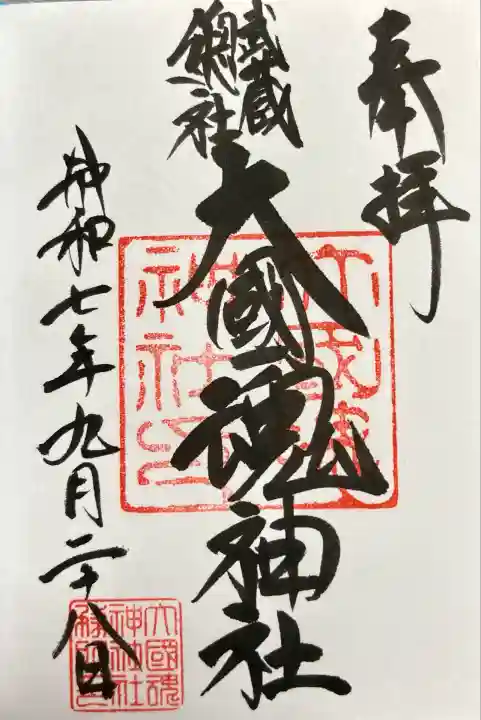 奉拝
武蔵
総社
大國魂神社
大國魂神社印
令和七年九月二十八日
大國魂
神社